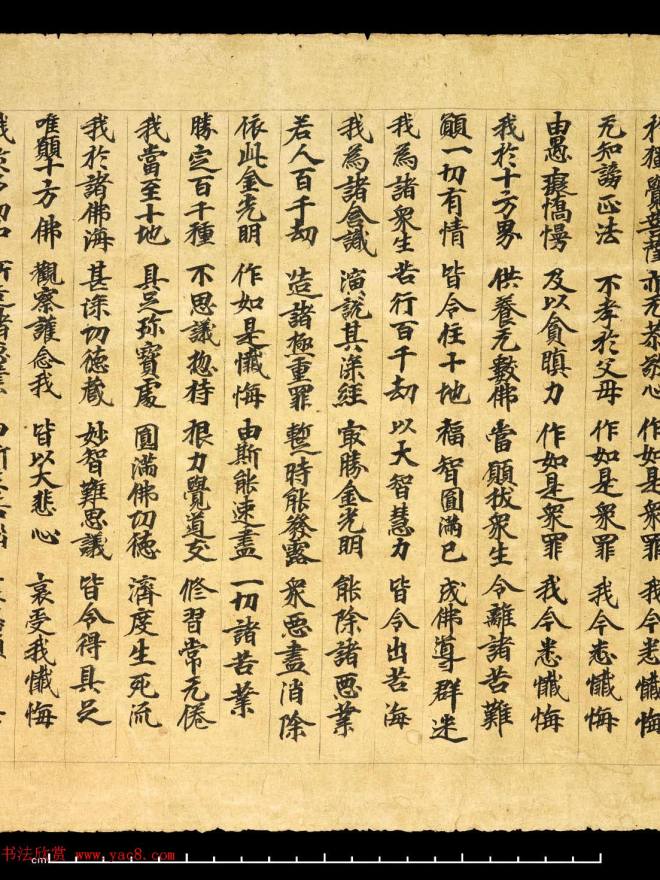 於獨覺菩薩 亦无恭敬心 作如是衆罪 我今悉懺悔
无知謗正法 不孝於父母 作如是衆罪 我今悉懺悔
由愚癡憍慢 及以貪瞋力 作如是衆罪 我今悉懺悔
我於十方界 供養无數佛 當願拔衆生 令離諸苦難
願一切有情 皆令住十地 福智圓滿已 成佛導群迷
我為諸衆生 苦行百千劫 以大智慧力 皆令出苦海
我為諸含識 演說甚深經 最勝金光明 能除諸惡業
若人百千劫 造諸極重罪 暫時能發露 衆惡盡消除
依此金光明 作如是懺悔 由斯能速盡 一切諸苦業
勝定百千種 不思議惣持 根力覺道支 修習常无倦
我當至十地 具足珎寶處 圓滿佛功德 濟度生死流
我於諸佛海 甚深功德藏 妙智難思議 皆令得具足
唯願十方佛 觀察護念我 皆以大悲心 哀受我懺悔
书法欣赏 www.yac8.com
cm